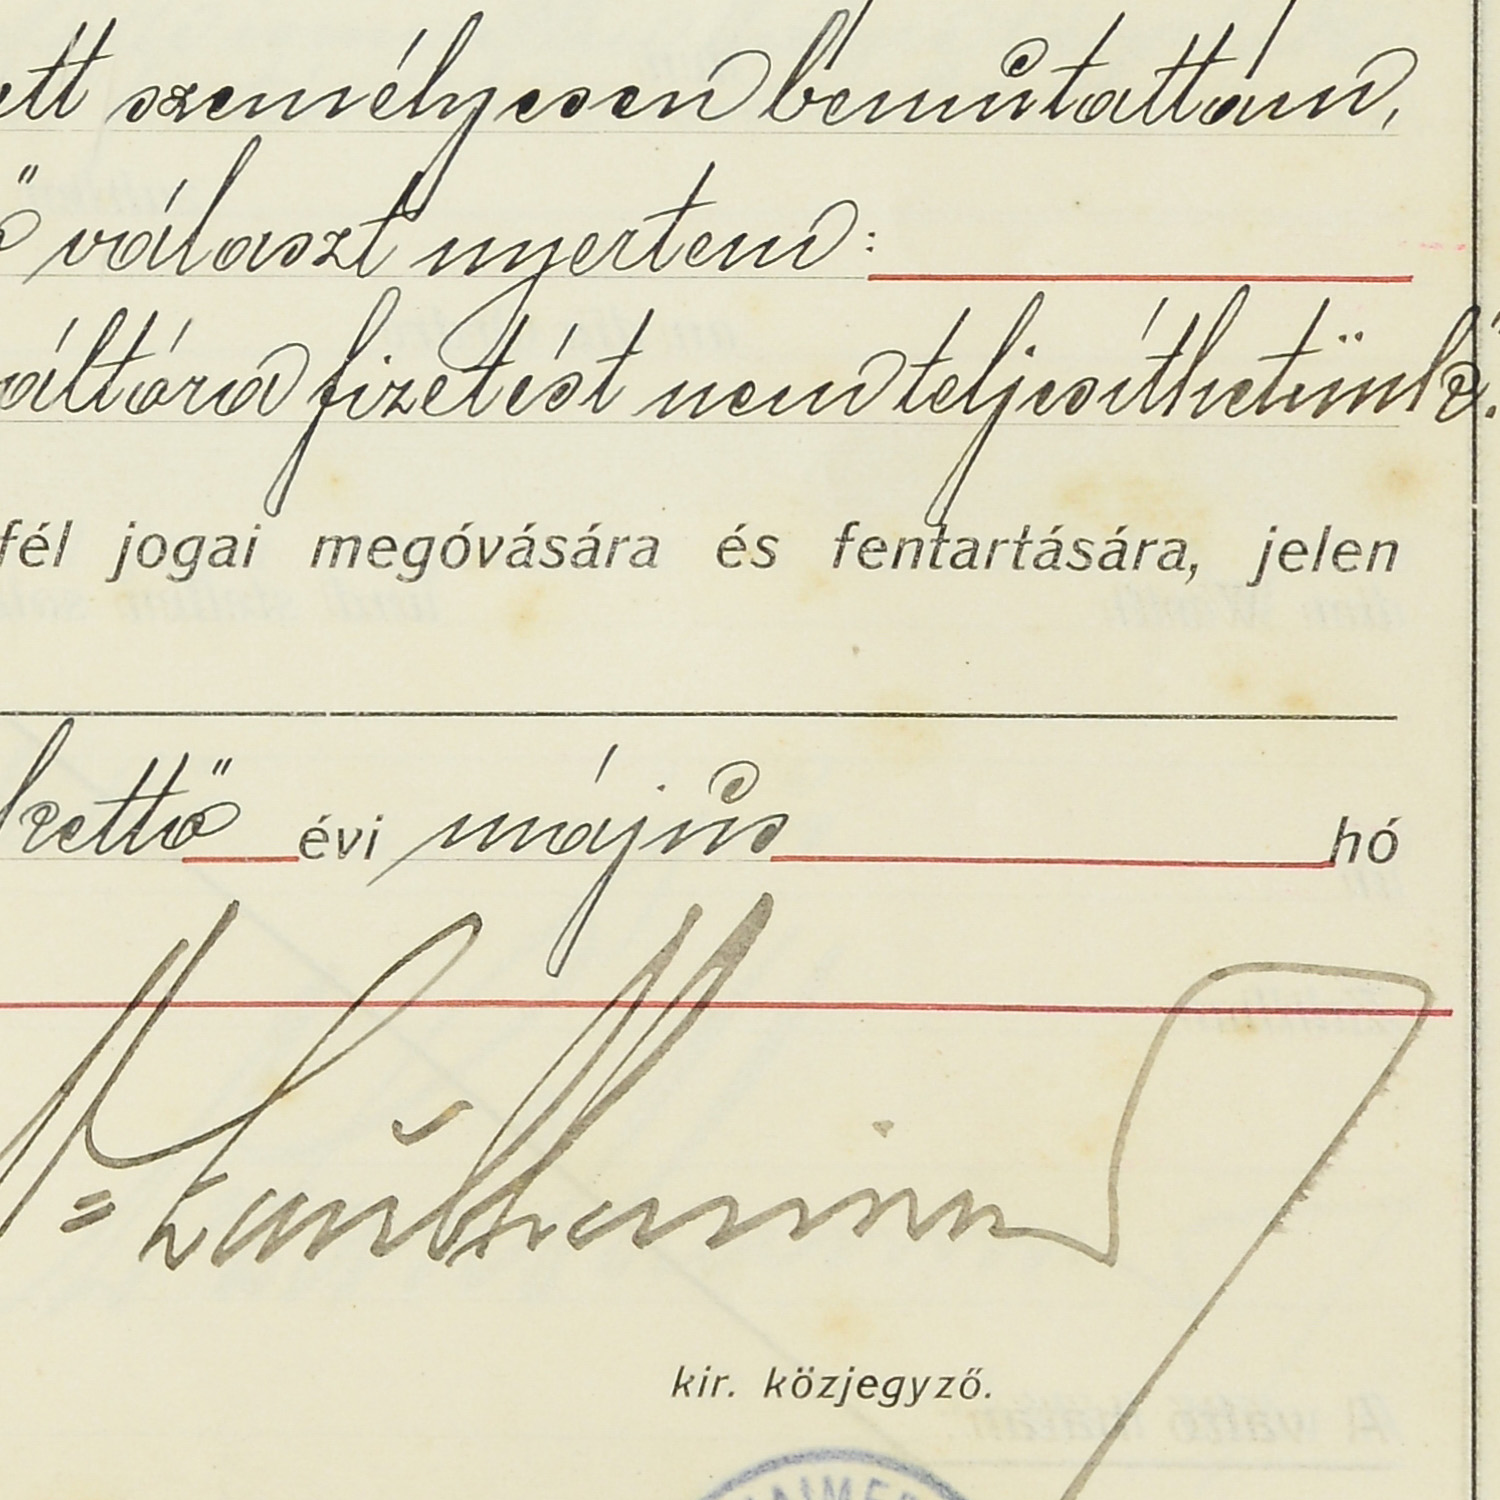 ett személyesen bemutattam,
választ nyertem:
váltóra fizetést nem teljesíthetünk".
fél jogai megóvására és fentartására, jelen
kettő évi május hó
kir. közjegyző.